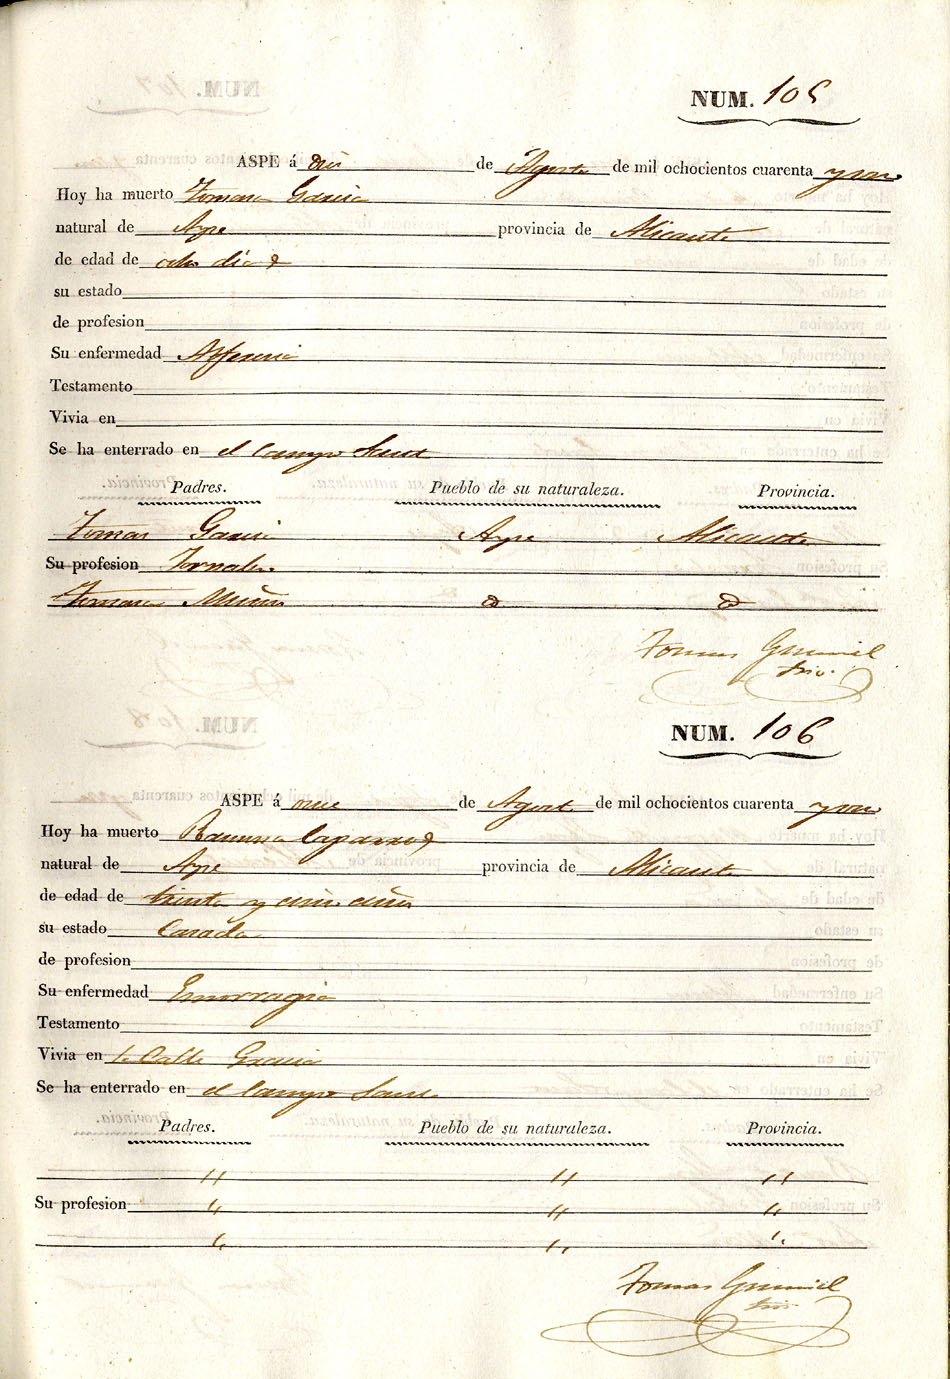 NUM. 105
ASPE á diez de Agosto de mil ochocientos cuarenta y
Hoy ha muerto Tomasa Garcia
natural de Aspe provincia de Alicante
de edad de ocho dias
su estado
de profesion
Su enfermedad Alferecia
Testamento
Vivia en
Se ha enterrado en el Campo Santo
Padres. Pueblo de su naturaleza. Provincia.
Tomas Garcia Aspe Alicante
Su profesion Jornalero
Tomasa Muñoz
Tomas
NUM. 106
ASPE á once de Agosto de mil ochocientos cuarenta y
Hoy ha muerto Ramona Caparros
natural de Aspe provincia de Alicante
de edad de treinta y cinco años
su estado Casada
de profesion
Su enfermedad Emorragia
Testamento
Vivia en Calle
Se ha enterrado en el Campo Santo
Padres. Pueblo de su naturaleza. Provincia.
" " "
Su profesion " " "
" " "
Tomas